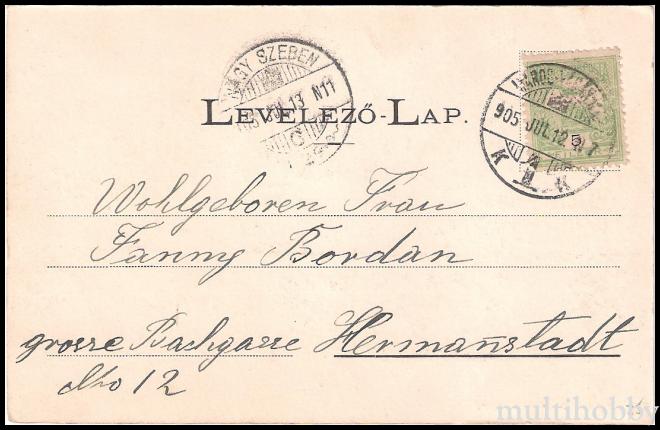 NAGY SZEBEN
905 JUL 13 N11
C
LEVELEZŐ-LAP.
MAROS
905 JUL 12 N 7
5
K K
Wohlgeboren Frau
Fanny Bordan
grosse Bachgasse Hermannstadt
No 12
multihobby